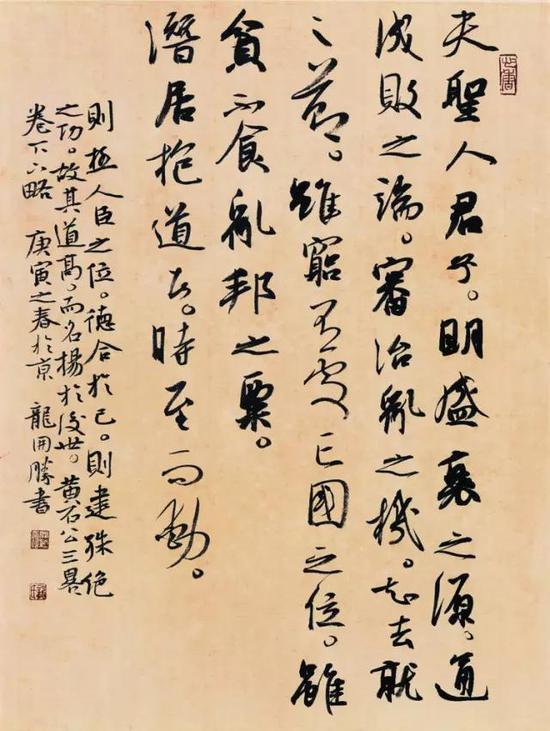 夫聖人君子。明盛衰之源。通
成敗之端。審治亂之機。知去就
之節。雖窮不處亡國之位。雖
貧不食亂邦之粟。
潛居抱道者。時至而動。
則極人臣之位。德合於己。則建殊絕
之功。故其道高。而名揚於後世。黃石公三畧
卷下下略 庚寅之春於京 龍開勝書